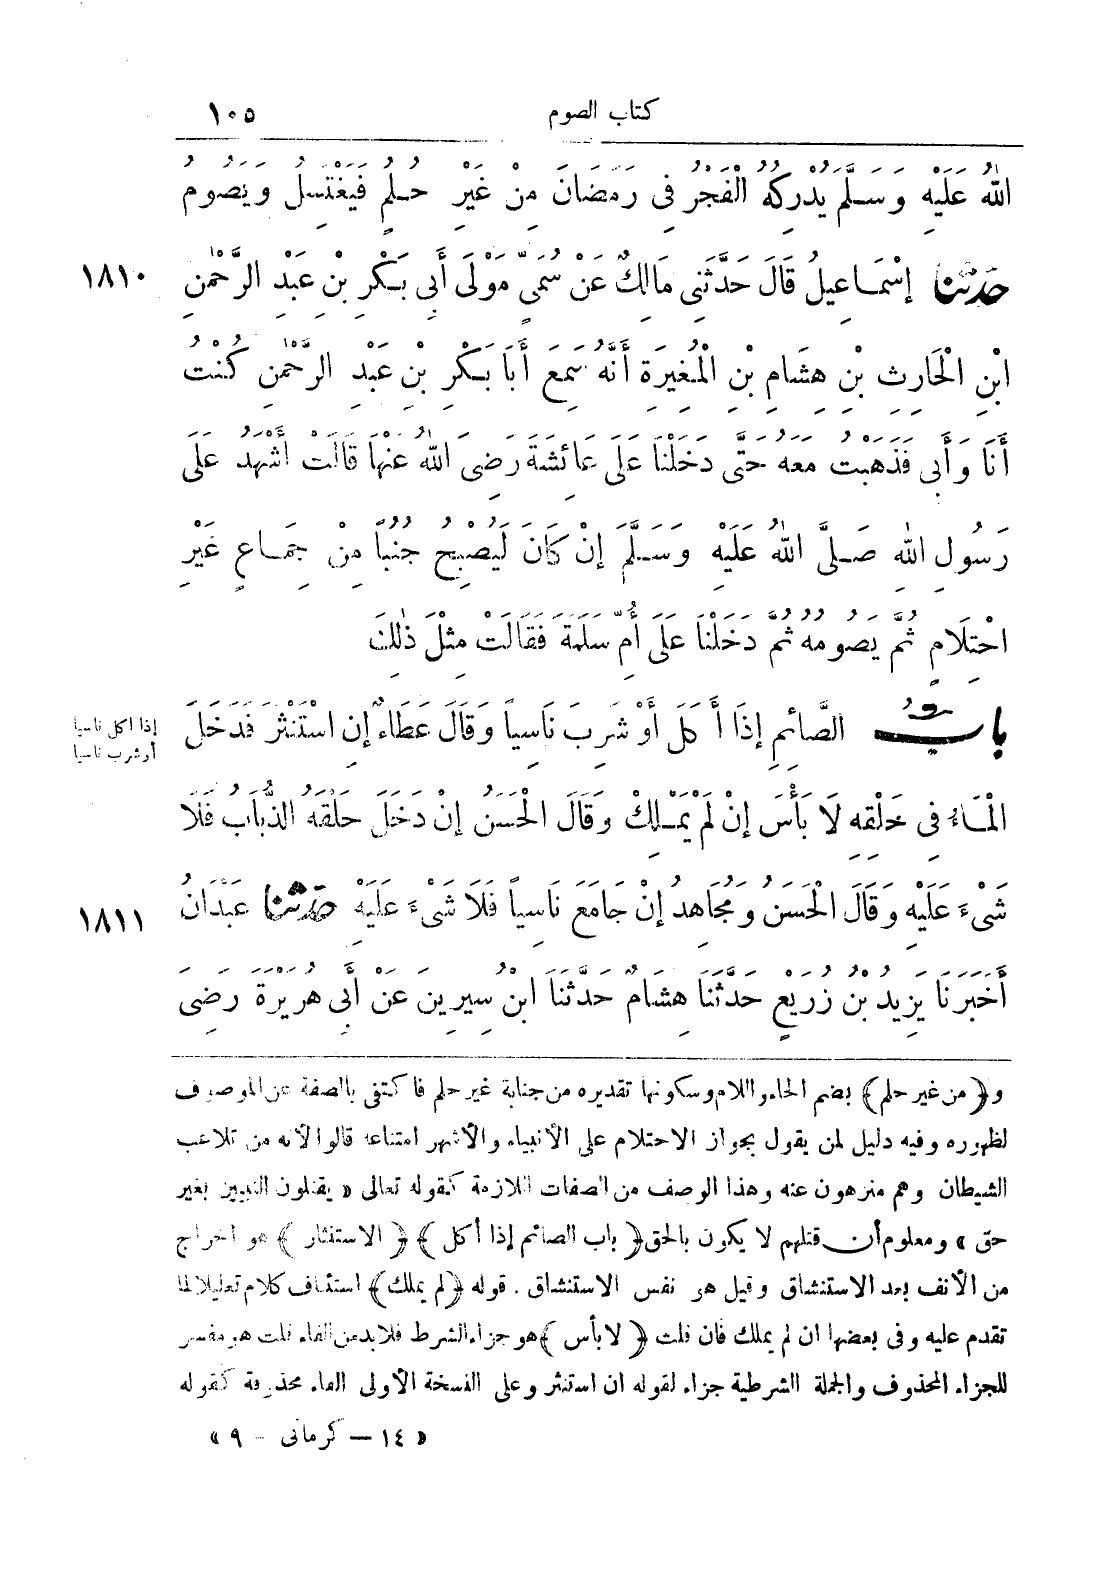 كتاب الصوم ١٠٥
اللهُ عَلَيْهِ وَسَلَّمَ يُدْرِكُهُ الْفَجْرُ فِى رَمَضَانَ مِنْ غَيْرِ حُلُمٍ فَيَغْتَسِلُ وَيَصُومُ
حَدَّثَنَا إِسْمَاعِيلُ قَالَ حَدَّثَنِى مَالِكٌ عَنْ سُمَىٍّ مَوْلَى أَبِى بَكْرِ بْنِ عَبْدِ الرَّحْمٰنِ ١٨١٠
ابْنِ الْحَارِثِ بْنِ هِشَامِ بْنِ الْمُغِيرَةِ أَنَّهُ سَمِعَ أَبَا بَكْرِ بْنَ عَبْدِ الرَّحْمٰنِ كُنْتُ
أَنَا وَأَبِى فَذَهَبْتُ مَعَهُ حَتَّى دَخَلْنَا عَلَى عَائِشَةَ رَضِىَ اللهُ عَنْهَا قَالَتْ أَشْهَدُ عَلَى
رَسُولِ اللهِ صَلَّى اللهُ عَلَيْهِ وَسَلَّمَ إِنْ كَانَ لَيُصْبِحُ جُنُبًا مِنْ جِمَاعٍ غَيْرِ
احْتِلَامٍ ثُمَّ يَصُومُهُ ثُمَّ دَخَلْنَا عَلَى أُمِّ سَلَمَةَ فَقَالَتْ مِثْلَ ذٰلِكَ
بَابُ الصَّائِمِ إِذَا أَكَلَ أَوْ شَرِبَ نَاسِياً وَقَالَ عَطَاءٌ إِنِ اسْتَنْثَرَ فَدَخَلَ
إذا أكل ناسيا
أو شرب ناسيا
الْمَاءُ فِى حَلْقِهِ لَا بَأْسَ إِنْ لَمْ يَمْلِكْ وَقَالَ الْحَسَنُ إِنْ دَخَلَ حَلْقَهُ الذُّبَابُ فَلَا
شَىْءَ عَلَيْهِ وَقَالَ الْحَسَنُ وَمُجَاهِدٌ إِنْ جَامَعَ نَاسِياً فَلَا شَىْءَ عَلَيْهِ حَدَّثَنَا عَبْدَانُ ١٨١١
أَخْبَرَنَا يَزِيدُ بْنُ زُرَيْعٍ حَدَّثَنَا هِشَامٌ حَدَّثَنَا ابْنُ سِيرِينَ عَنْ أَبِى هُرَيْرَةَ رَضِىَ
و﴿من غير حلم﴾ بضم الحاء واللام وسكونها تقديره من جنابة غير حلم فاكتفى بالصفة عن الموصوف
لظهوره وفيه دليل لمن يقول بجواز الاحتلام على الأنبياء والأشهر امتناعه قالوا لأنه من تلاعب
الشيطان وهم منزهون عنه وهذا الوصف من الصفات اللازمة كقوله تعالى « يقتلون النبيين بغير
حق » ومعلوم أن قتلهم لا يكون بالحق ﴿باب الصائم إذا أكل﴾ ﴿الاستنثار﴾ هو اخراج
من الأنف بعد الاستنشاق وقيل هو نفس الاستنشاق . قوله ﴿لم يملك﴾ استئناف كلام تعليلا لما
تقدم عليه وفى بعضها ان لم يملك فان قلت ﴿لا بأس﴾ هو جزاء الشرط فلا بد من الفاء قلت هو مفسر
للجزاء المحذوف والجملة الشرطية جزاء لقوله ان استنثر وعلى النسخة الأولى الفاء محذوفة كقوله
« ١٤ – كرمانى - ٩ »